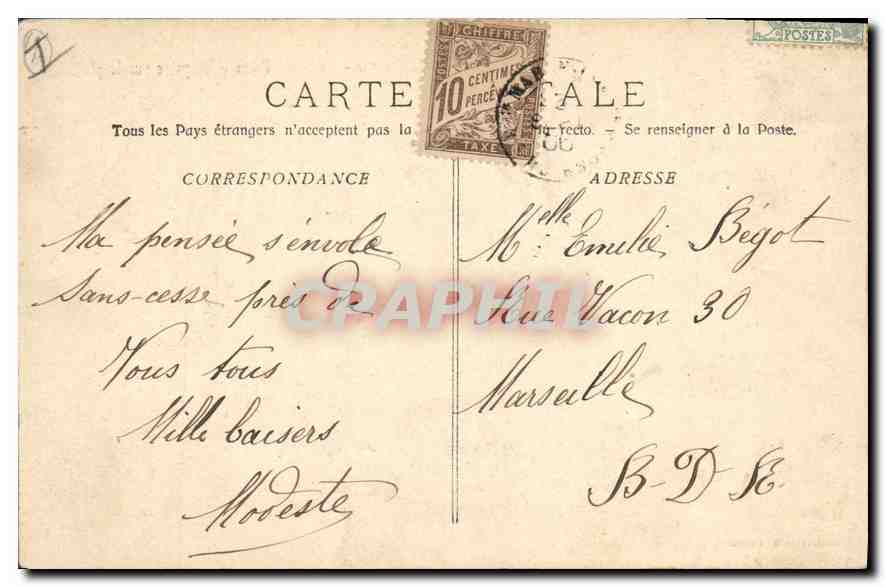 1
POSTES
CARTE TALE
Tous les Pays étrangers n'acceptent pas la recto. - Se renseigner à la Poste.
CHIFFRE
POSTES
10 CENTIMES
À PERCEVOIR
TAXE
MAR
CORRESPONDANCE
Ma pensée s'envole
sans-cesse près de
Vous tous
Mille baisers
Modeste
ADRESSE
Melle Emilie Bégot
Rue Vacon 30
Marseille
B-D-R
CPAPHIL